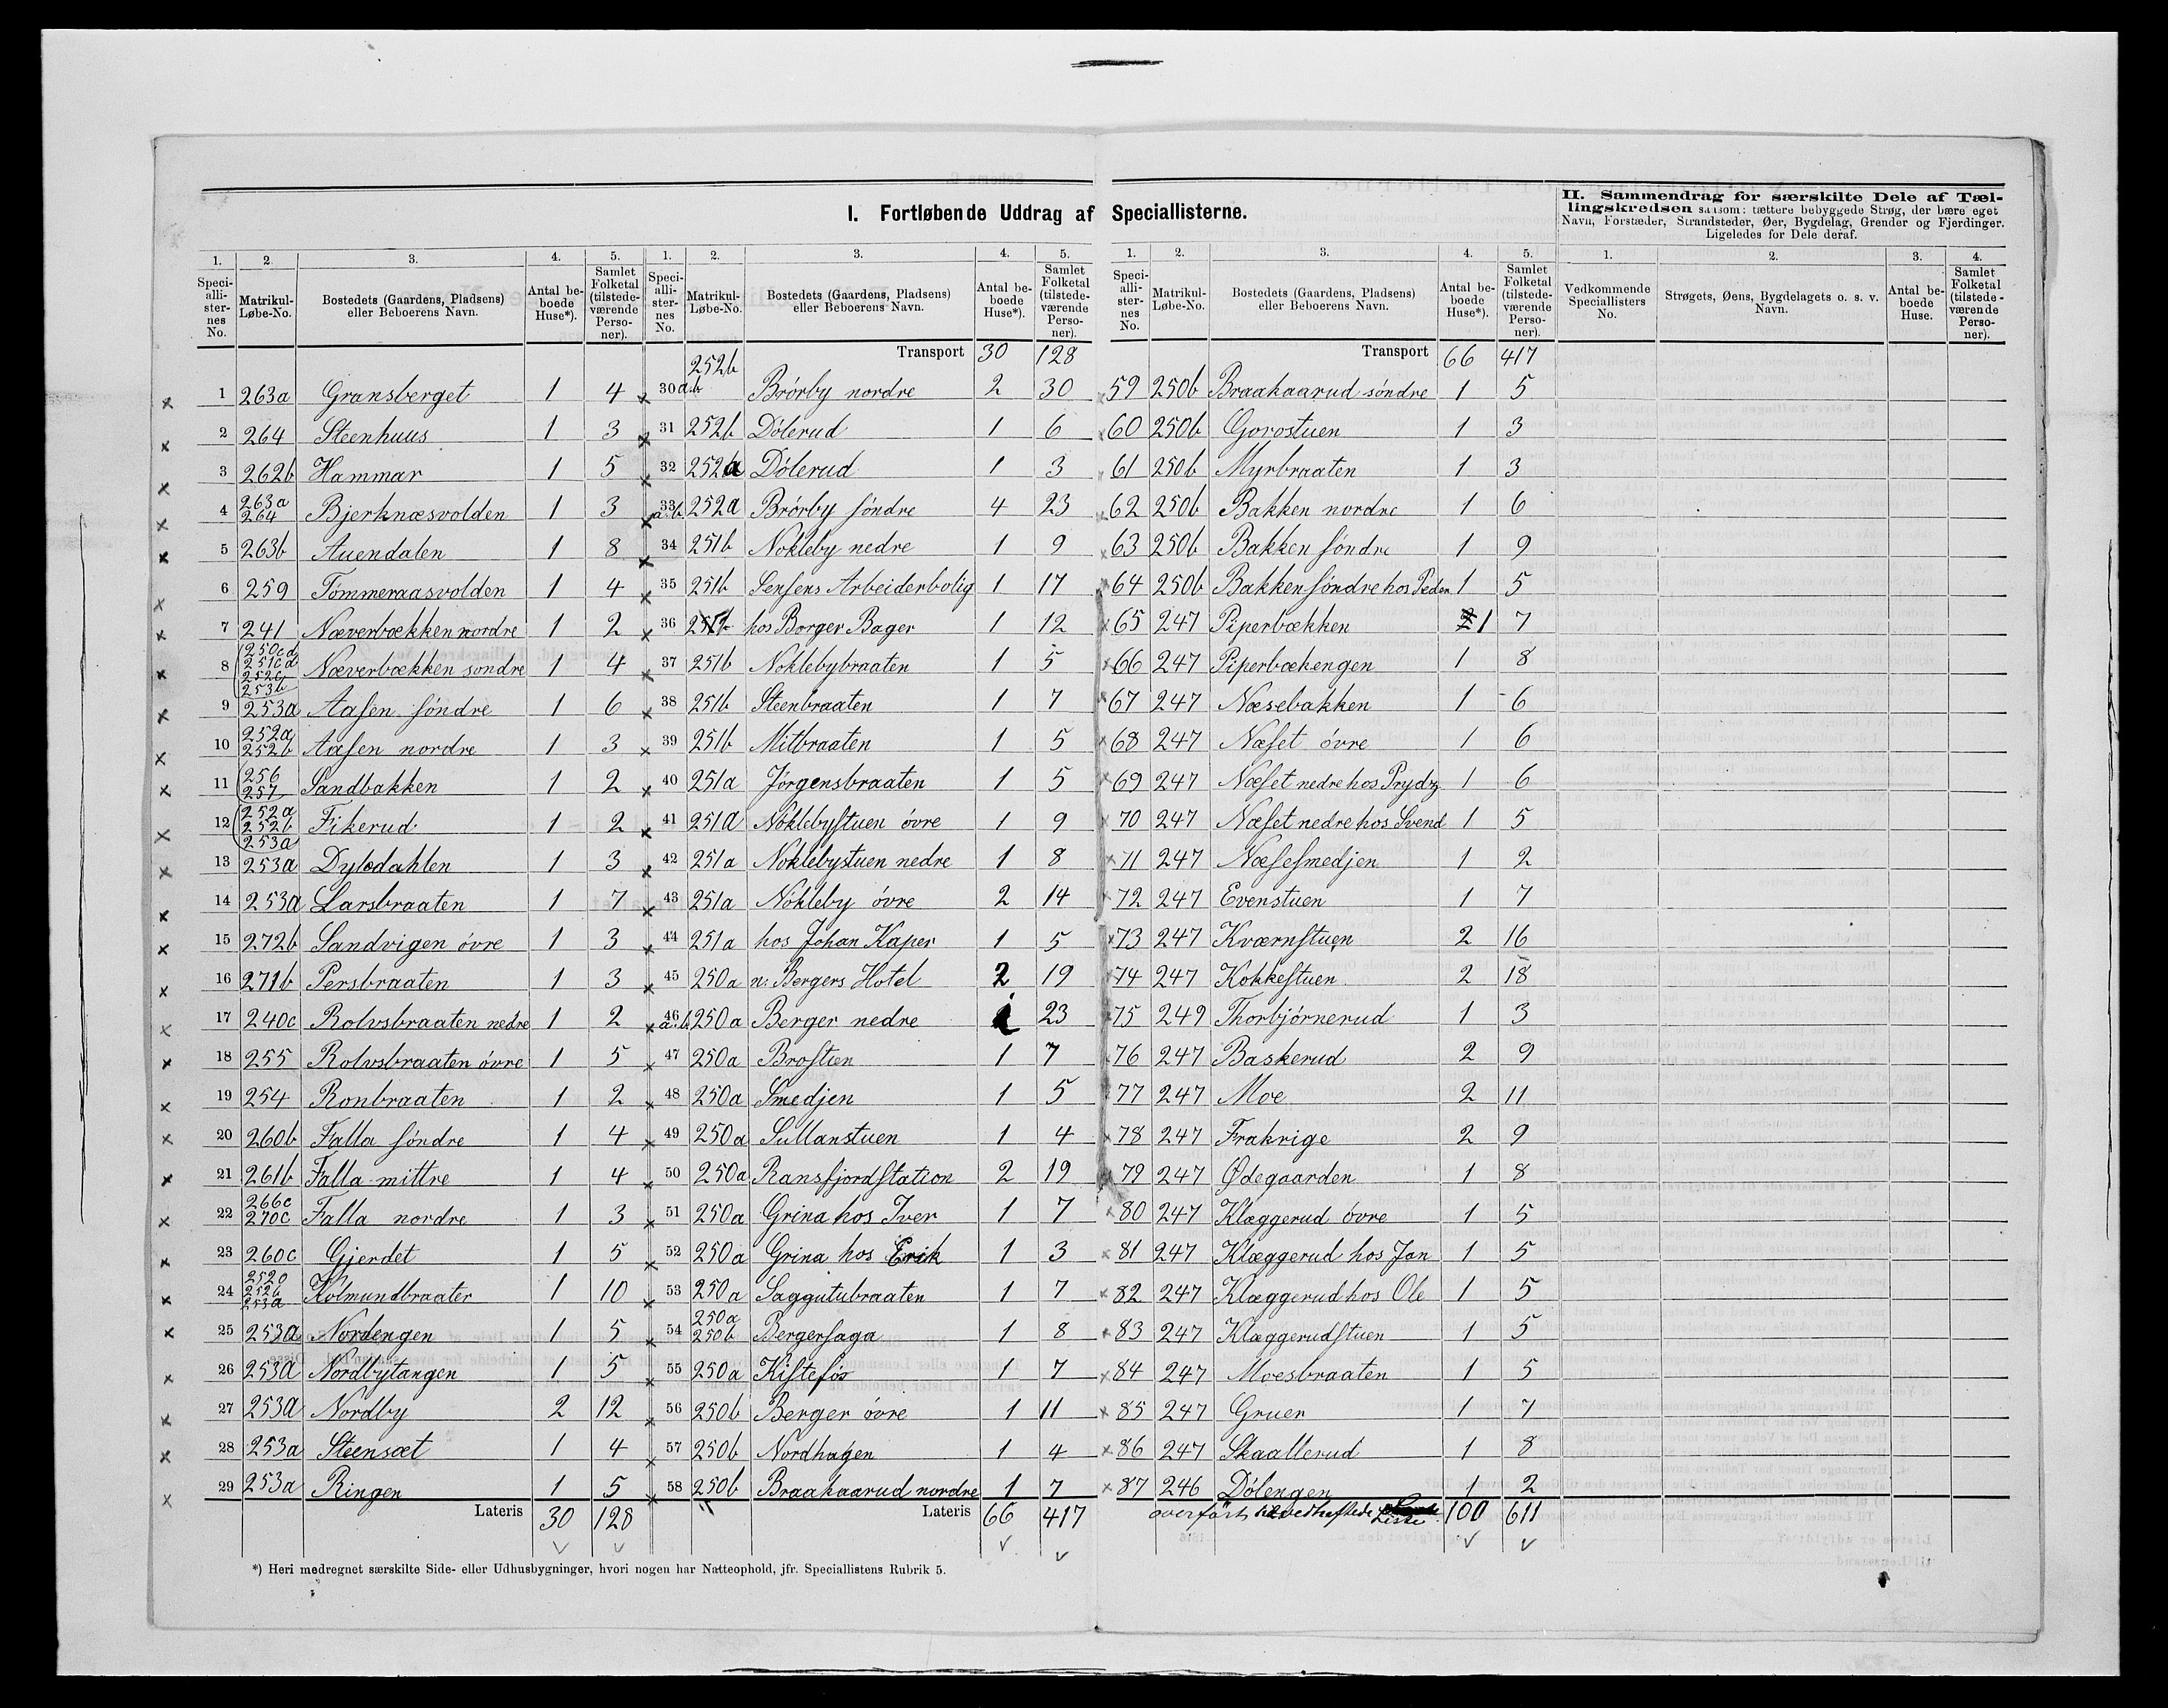 I. Fortløbende Uddrag af Speciallisterne.
II. Sammendrag for særskilte Dele af Tæl-
lingskredsen saasom: tættere bebyggede Strøg, der bære eget
Navn, Forstæder, Strandsteder, Øer, Bygdelag, Grender og Fjerdinger.
Ligeledes for Dele deraf.
1. 2. 3. 4. 5.
Speciallisternes No. Matrikul-Løbe-No. Bostedets (Gaardens, Pladsens) eller Beboerens Navn. Antal beboede Huse*). Samlet Folketal (tilstedeværende Personer).
1 263a Gransberget 1 4
2 264 Steenhuus 1 3
3 262b Hammar 1 5
4 263a 264 Bjerknæsvolden 1 3
5 263b Auendalen 1 8
6 259 Tömmeraasvolden 1 4
7 241 Næverbækken nordre 1 2
8 250cd 251cd 252c 253b Næverbækken söndre 1 4
9 253a Aasen söndre 1 6
10 252a 252b Aasen nordre 1 3
11 256 257 Sandbakken 1 2
12 252a 252b 253a Fikerud 1 2
13 253a Dyledahlen 1 3
14 253a Larsbraaten 1 7
15 272b Sandvigen övre 1 3
16 271b Persbraaten 1 3
17 240c Rolvsbraaten nedre 1 2
18 255 Rolvsbraaten övre 1 5
19 254 Ronbraaten 1 2
20 260b Falla söndre 1 4
21 261b Falla mittre 1 4
22 266c 270c Falla nordre 1 3
23 260c Gjerdet 1 5
24 252b 253a Kolmundbraaten 1 10
25 253a Nordengen 1 5
26 253a Nordbytangen 1 5
27 253a Nordby 2 12
28 253a Steensæt 1 4
29 253a Ringen 1 5
Lateris 30 128
1. 2. 3. 4. 5.
Speciallisternes No. Matrikul-Løbe-No. Bostedets (Gaardens, Pladsens) eller Beboerens Navn. Antal beboede Huse*). Samlet Folketal (tilstedeværende Personer).
Transport 30 128
30 a.b 252b Brörby nordre 2 30
31 252b Dölerud 1 6
32 252a Dölerud 1 3
33 a.b. 252a Brörby söndre 4 23
34 251b Nökleby nedre 1 9
35 251b Sensens Arbeiderbolig 1 17
36 hos Borger Bager 1 12
37 251b Noklebybraaten 1 5
38 251b Steenbraaten 1 7
39 251b Mitbraaten 1 5
40 251a Jörgensbraaten 1 5
41 251a Nöklebystuen övre 1 9
42 251a Noklebystuen nedre 1 8
43 251a Nökleby övre 2 14
44 251a hos Johan Kaper 1 5
45 250a n: Bergers Hotel 2 19
46 a.b. 250a Berger nedre 23
47 250a Brostien 1 7
48 250a Smedjen 1 5
49 250a Sullanstuen 1 4
50 250a Ransfjordstation 2 19
51 250a Grina hos Iver 1 7
52 250a Grina hos Erik 1 3
53 250a Saggutubraaten 1 7
54 250a 250b Bergersaga 1 8
55 250a Kistefos 1 7
56 250b Berger övre 1 11
57 250b Nordhagen 1 4
58 250b Braakaarud nordre 1 7
Lateris 66 417
1. 2. 3. 4. 5.
Speciallisternes No. Matrikul-Løbe-No. Bostedets (Gaardens, Pladsens) eller Beboerens Navn. Antal beboede Huse*). Samlet Folketal (tilstedeværende Personer).
Transport 66 417
59 250b Braakaarud söndre 1 5
60 250b Gorostuen 1 3
61 250b Myrbraaten 1 3
62 250b Bakken nordre 1 6
63 250b Bakken söndre 1 9
64 250b Bakken söndre hos Peder 1 5
65 247 Piperbækken 1 7
66 247 Piperbækengen 1 8
67 247 Næsebakken 1 6
68 247 Næset övre 1 6
69 247 Næset nedre hos Prydz 1 6
70 247 Næset nedre hos Svend 1 5
71 247 Næsesmedjen 1 2
72 247 Evenstuen 1 7
73 247 Kværnstuen 2 16
74 247 Kokkestuen 2 18
75 249 Thorbjörnerud 1 3
76 247 Baskerud 2 9
77 247 Moe 2 11
78 247 Frakrige 2 9
79 247 Ødegaarden 1 8
80 247 Klæggerud övre 1 5
81 247 Klæggerud hos Jan 1 5
82 247 Klæggerud hos Ole 1 5
83 247 Klæggerudstuen 1 5
84 247 Moesbraaten 1 5
85 247 Gruer 1 7
86 247 Skaallerud 1 8
87 246 Dölengen 1 2
overfört til vedheftede Liste 100 611
1. 2. 3. 4.
Vedkommende Speciallisters No. Strøgets, Øens, Bygdelagets o. s. v. Navn. Antal beboede Huse. Samlet Folketal (tilstedeværende Personer).
*) Heri medregnet særskilte Side- eller Udhusbygninger, hvori nogen har Natteophold, jfr. Speciallistens Rubrik 5.